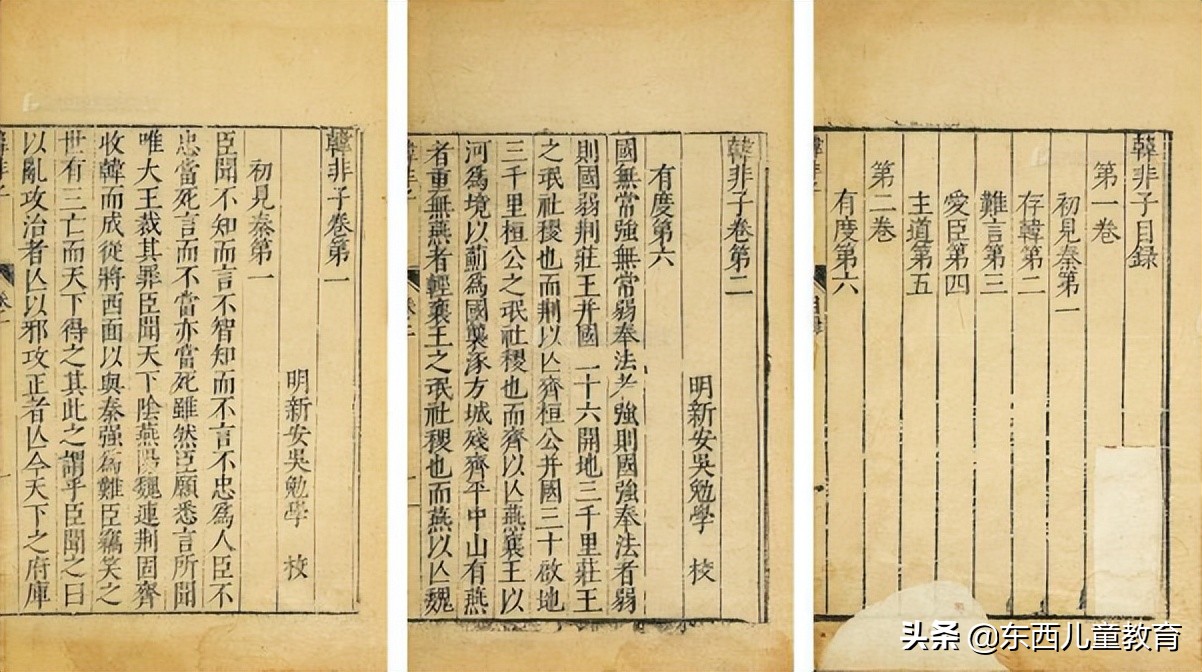 韓非子卷第一
明新安吳勉學 校
初見秦第一
臣聞不知而言不智知而不言不忠爲人臣不
忠當死言而不當亦當死雖然臣願悉言所聞
唯大王裁其罪臣聞天下陰燕陽魏連荆固齊
收韓而成從將西面以與秦强爲難臣竊笑之
世有三亡而天下得之其此之謂乎臣聞之曰
以亂攻治者亾以邪攻正者亾今天下之府庫
韓非子卷第二
明新安吳勉學 校
有度第六
國無常強無常弱奉法者強則國強奉法者弱
則國弱荆莊王并國一十六開地三千里莊王
之氓社稷也而荆以亾齊桓公并國三十啟地
三千里桓公之氓社稷也而齊以亾燕襄王以
河爲境以薊爲國襲涿方城殘齊平中山有燕
者重無燕者輕襄王之氓社稷也而燕以亾魏
韓非子目錄
第一卷
初見秦第一
存韓第二
難言第三
愛臣第四
主道第五
第二卷
有度第六
头条 @东西儿童教育